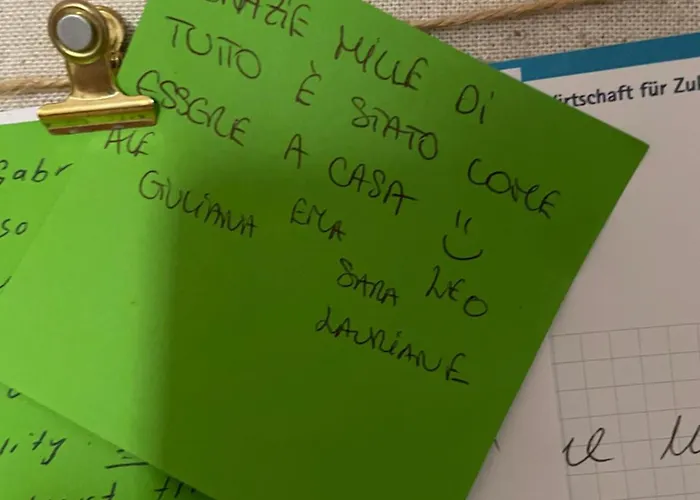 GRAZIE MILLE DI
TUTTO È STATO COME
ESSERE A CASA :)
ALE
GIULIANA EMA
SARA LEO
LAURIANE
irtschaft für Zul
Gabr
so
lity